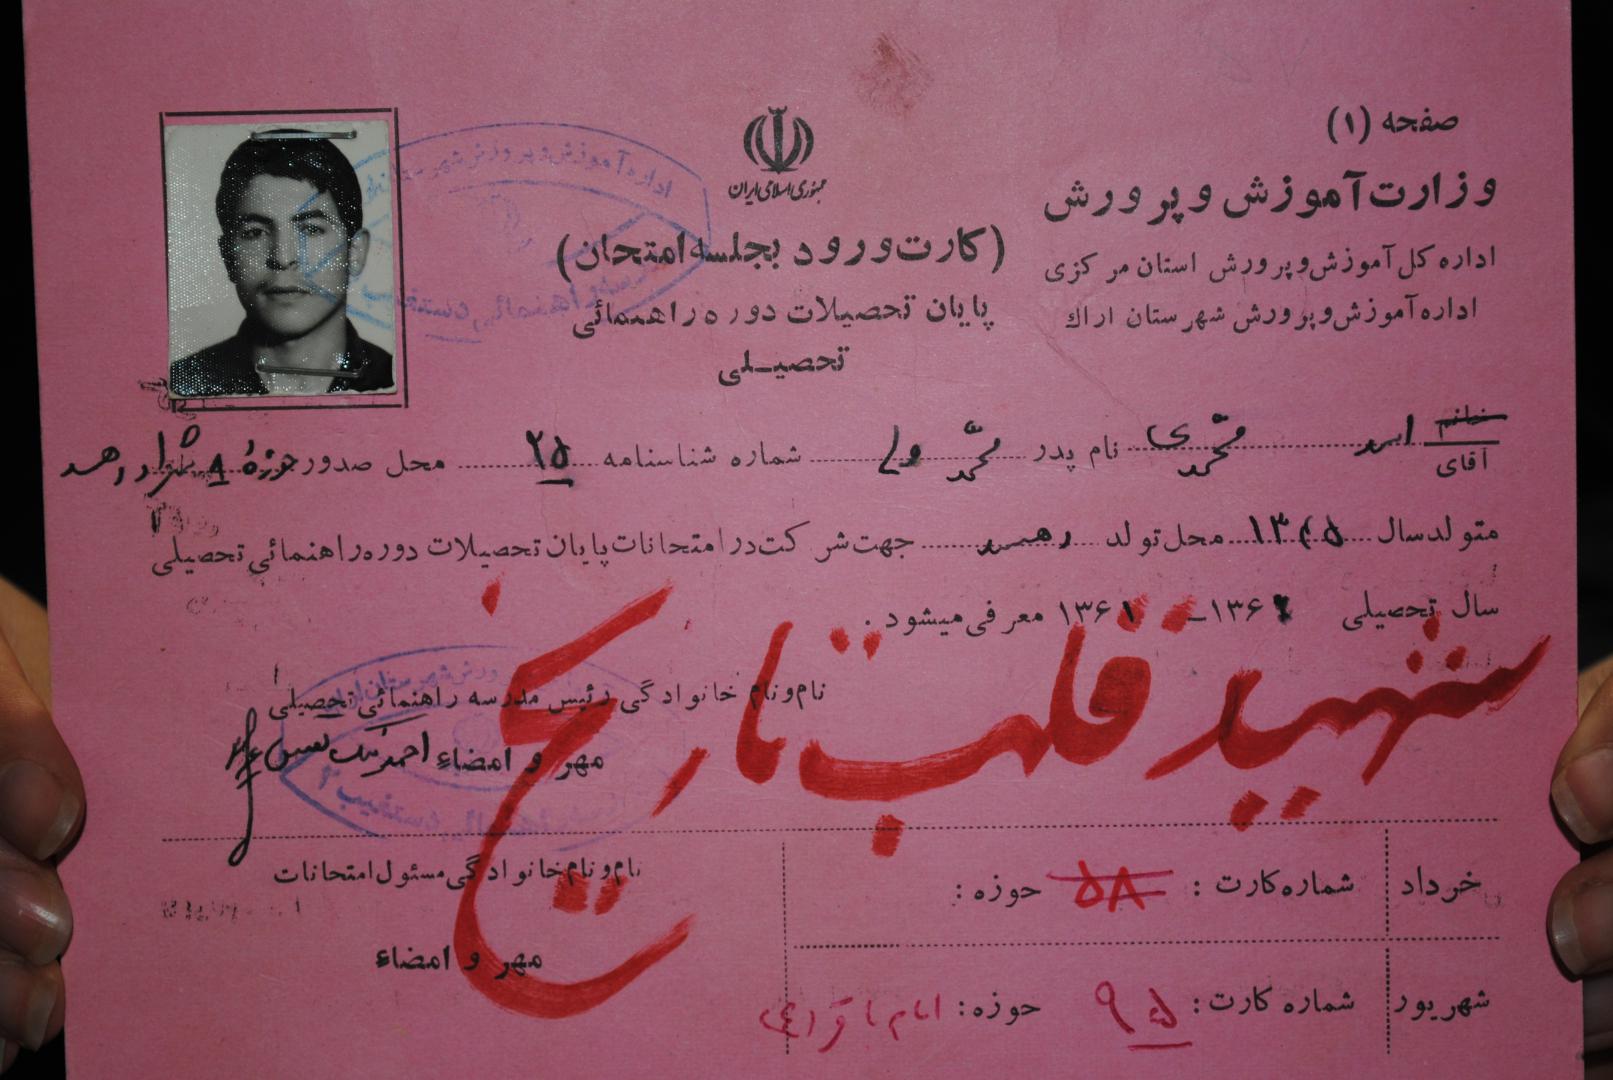 صفحه (۱)
جمهوری اسلامی ایران
وزارت آموزش و پرورش
(کارت ورود بجلسه امتحان)
اداره کل آموزش و پرورش استان مرکزی
پایان تحصیلات دوره راهنمائی
اداره آموزش و پرورش شهرستان اراك
تحصیلی
خانم
آقای محمدی نام پدر محمد ولی شماره شناسنامه ۲۵ محل صدور حوزه ۸
متولد سال ۱۳۴۵ محل تولد جهت شرکت در امتحانات پایان تحصیلات دوره راهنمائی تحصیلی
سال تحصیلی ۱۳۶۱ معرفی میشود .
شهید قلب تاریخ
نام و نام خانوادگی رئیس مدرسه راهنمائی تحصیلی
مهر و امضاء
نام و نام خانوادگی مسئول امتحانات
مهر و امضاء
خرداد شماره کارت : ۵۸ حوزه :
شهریور شماره کارت : ۹۵ حوزه : امام باقر (ع)